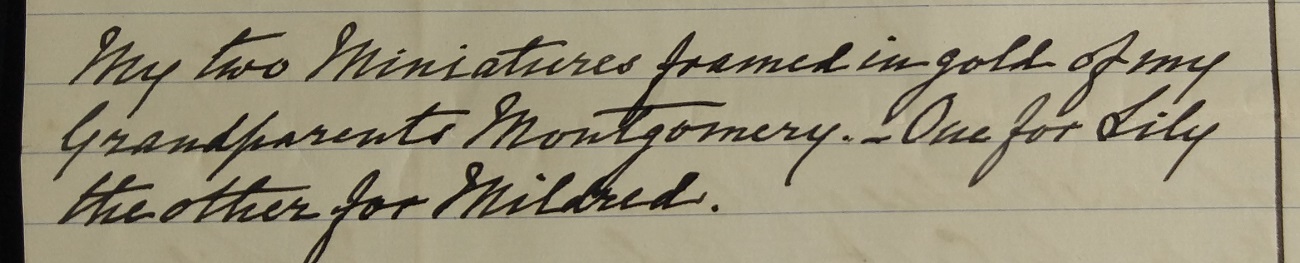 My two Miniatures framed in gold of my
Grandparents Montgomery. - One for Lily
the other for Mildred.